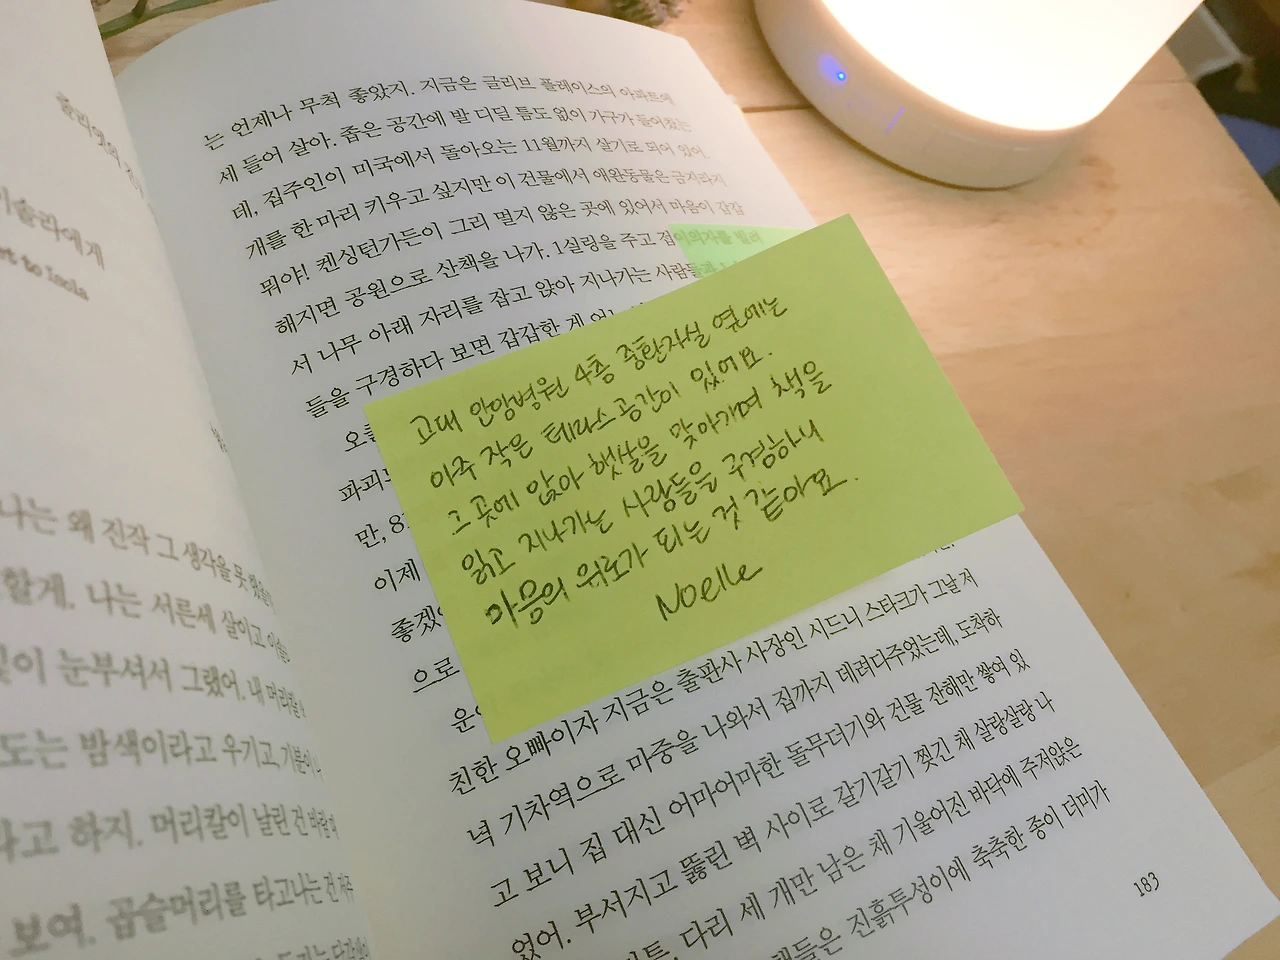 이슬라에게
to Isola
나는 왜 진작 그 생각을 못
할게. 나는 서른세 살이고
눈부셔서 그랬어. 내 머리칼
도는 밤색이라고 우기고,
하지. 머리칼이 날린 건 바람
보여. 곱슬머리를 타고나는 건
는 언제나 무척 좋았지. 지금은 글리브 플레이스의 아파트에
세 들어 살아. 좁은 공간에 발 디딜 틈도 없이 가구가 들어찼는
데, 집주인이 미국에서 돌아오는 11월까지 살기로 되어 있어.
개를 한 마리 키우고 싶지만 이 건물에서 애완동물은 금지라지
뭐야! 켄싱턴가든이 그리 멀지 않은 곳에 있어서 마음이 갑갑
해지면 공원으로 산책을 나가. 1실링을 주고 접이의자를 빌려
서 나무 아래 자리를 잡고 앉아 지나가는 사람들과
들을 구경하다 보면 갑갑한 게
만, 8
이제
으로
고대 안암병원 4층 중환자실 옆에는
아주 작은 테라스 공간이 있어요.
그곳에 앉아 햇살을 맞아가며 책을
읽고 지나가는 사람들을 구경하니
마음의 위로가 되는 것 같아요.
Noelle
친한 오빠이자 지금은 출판사 사장인 시드니 스타크가 그날 저
녁 기차역으로 마중을 나와서 집까지 데려다주었는데, 도착하
고 보니 집 대신 어마어마한 돌무더기와 건물 잔해만 쌓여 있
었어. 부서지고 뚫린 벽 사이로 갈기갈기 찢긴 채 살랑살랑 나
다리 세 개만 남은 채 기울어진 바닥에 주저앉은
진흙투성이에 축축한 종이 더미가
183